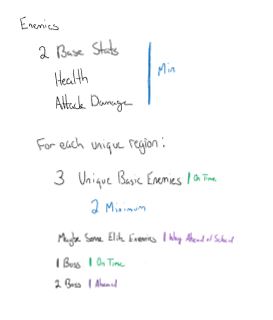 Enemies
2 Base Stats
Health
Attack Damage
Min
For each unique region:
3 Unique Basic Enemies | On Time
2 Minimum
Maybe Some Elite Enemies | Way Ahead of Sched
1 Boss | On Time
2 Boss | Ahead